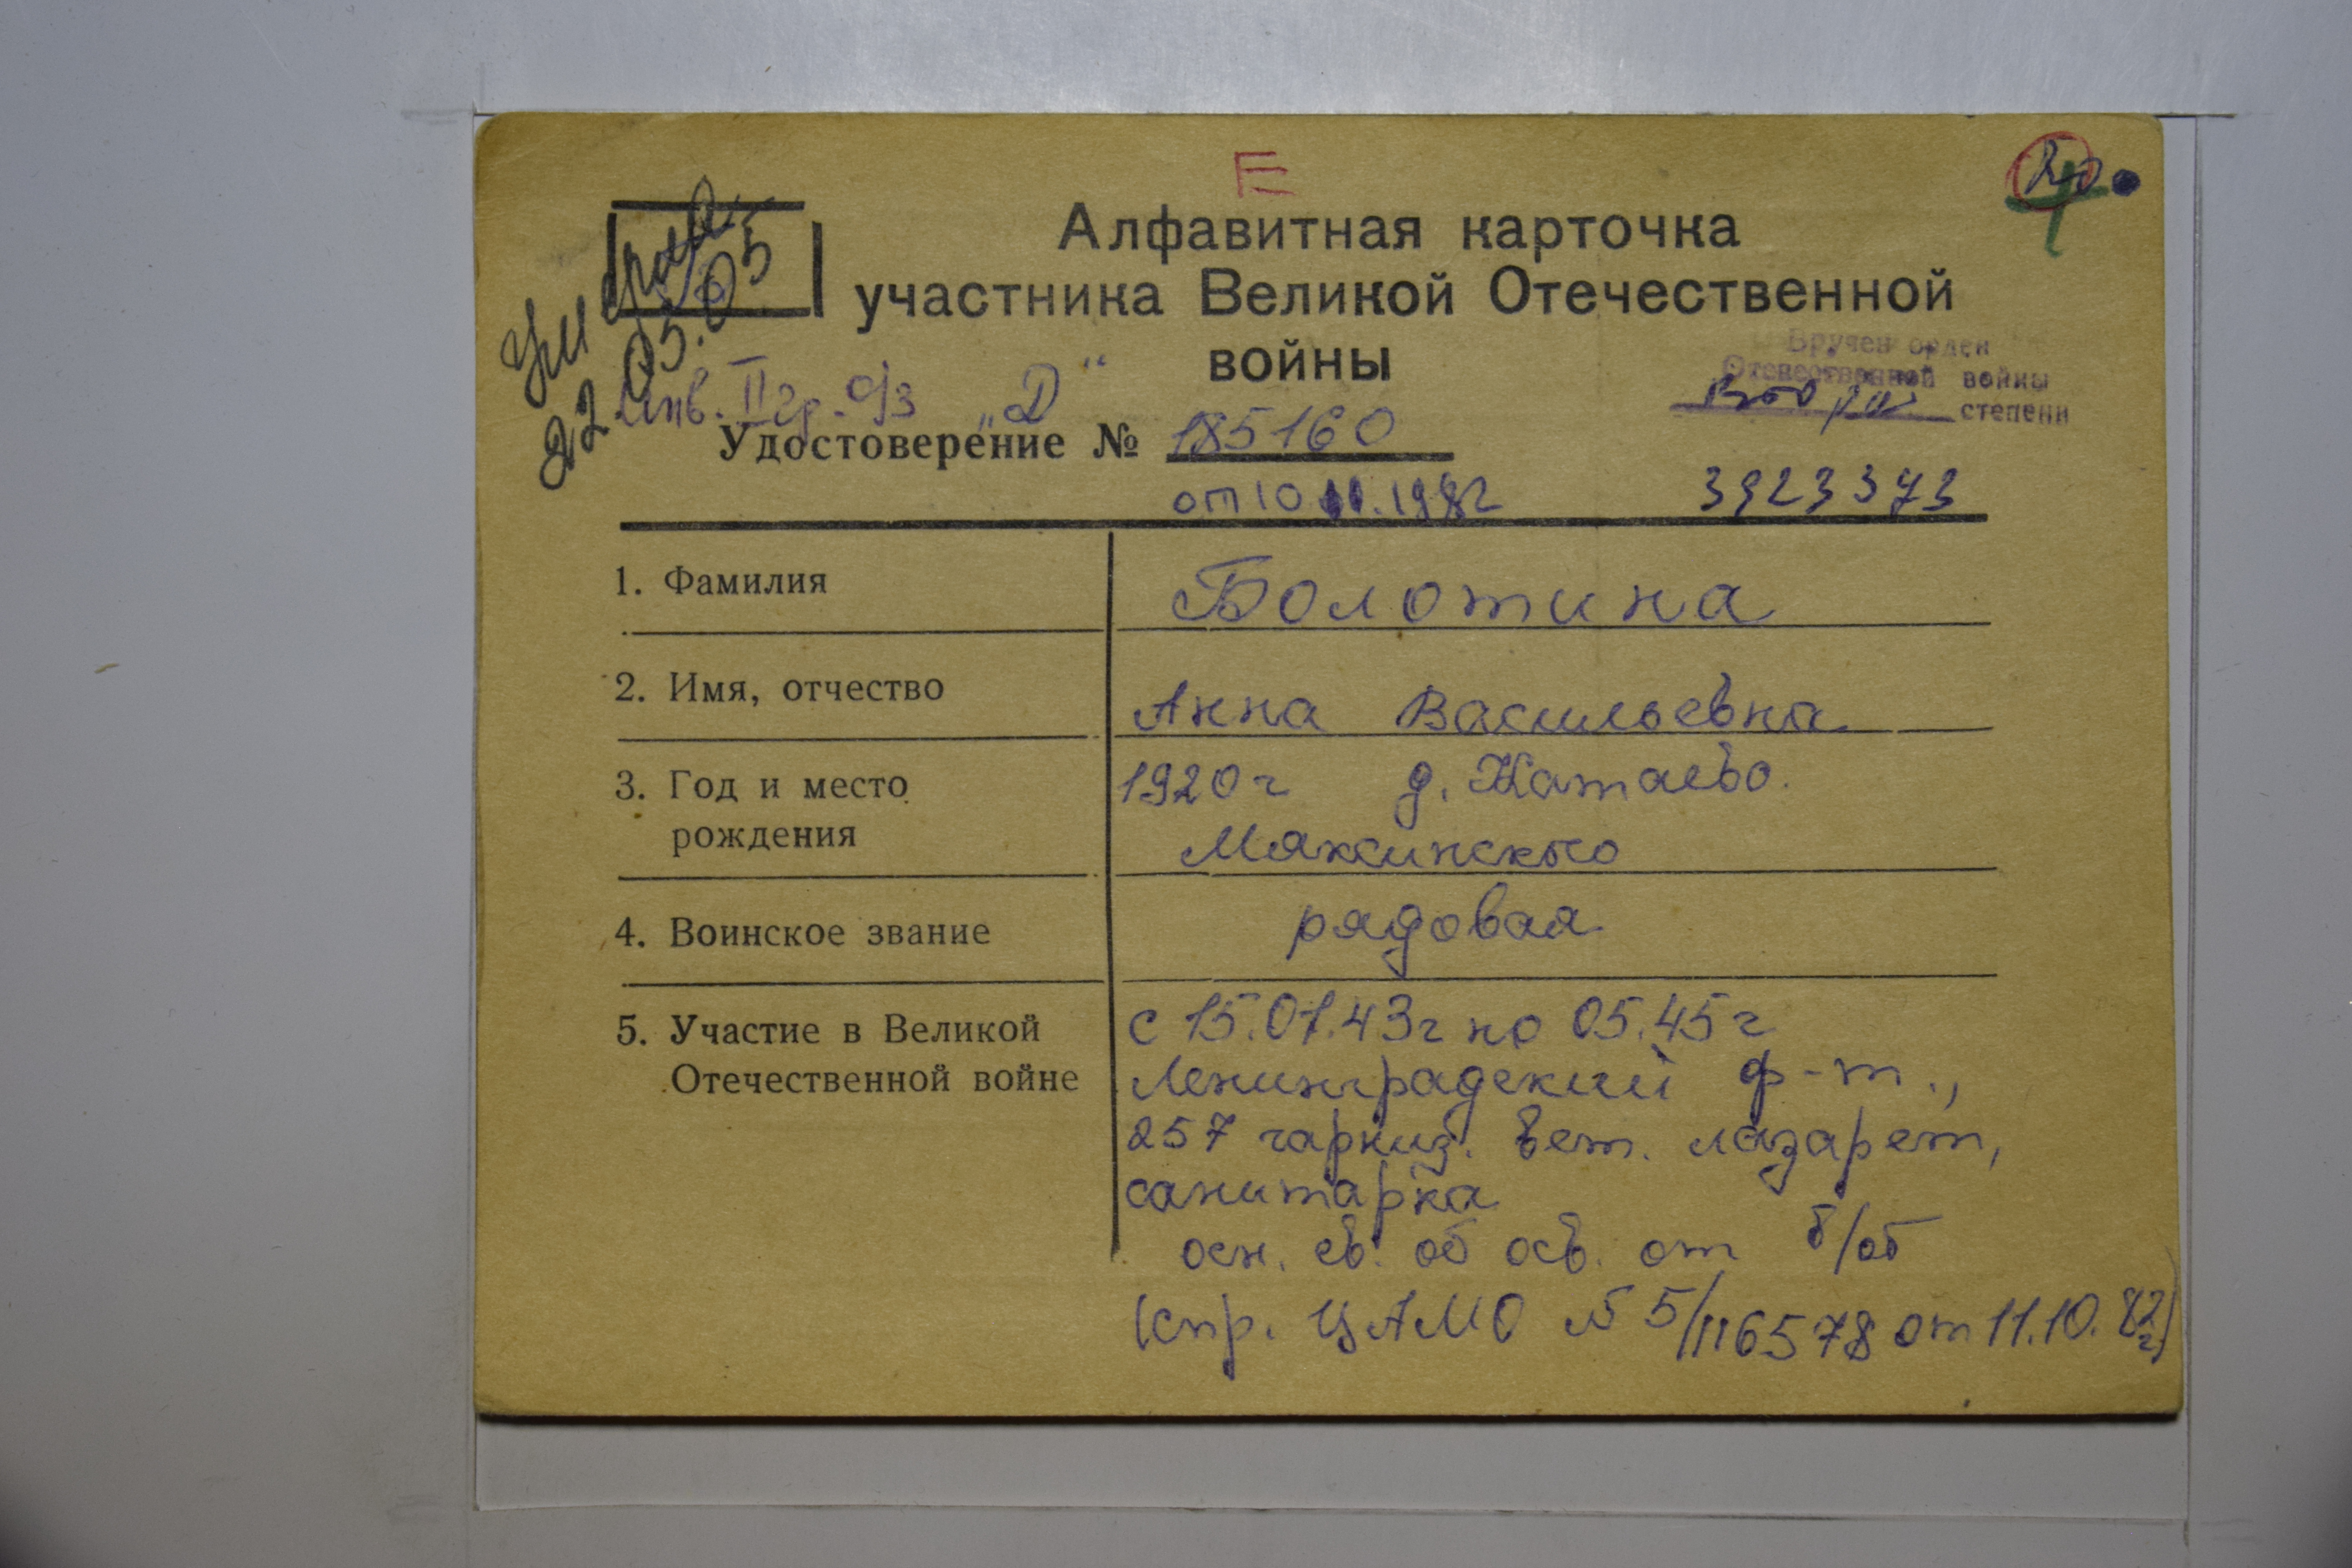 Е
Алфавитная карточка
участника Великой Отечественной
войны
Умерла
22.05.05
инв. II гр. о/з „D“
Вручен орден
Отечественной войны
второй степени
Удостоверение № 185160
от 10 11.1982
3923373
1. Фамилия
Болотина
2. Имя, отчество
Анна Васильевна
3. Год и место
рождения
1920 г д. Катаево.
Мяксинского
4. Воинское звание
рядовая
5. Участие в Великой
Отечественной войне
с 15.01.43г по 05.45 г
Ленинградский ф-т.,
257 гарниз. вет. лазарет,
санитарка
осн. св. об осв. от в/об
(спр. ЦАМО № 5/116578 от 11.10.82г)